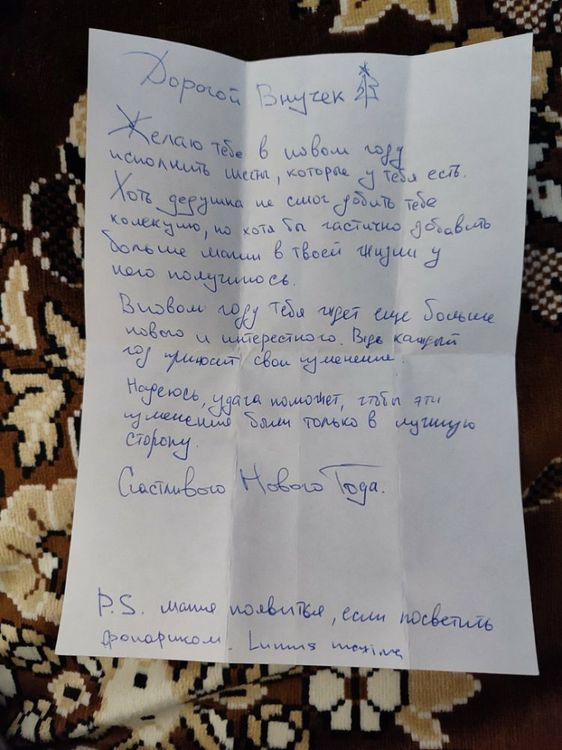 Дорогой Внучек
Желаю тебе в новом году
исполнить мечты, которые у тебя есть.
Хоть дедушка не смог добить тебе
колекцию, но хотя бы частично добавить
больше магии в твоей жизни у
него получилось.
В новом году тебя ждет еще больше
нового и интерестного. Ведь каждый
год приносит свои изменение.
Надеюсь, удача поможет, чтобы эти
изменения были только в лучшую
сторону.
Счастливого Нового Года.
P.S. магия появиться, если посветить
фонариком. Lumus maxima